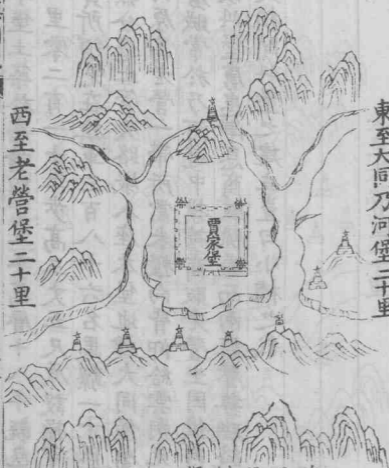 東至大同乃河堡二十里
賈家堡
西至老營堡二十里